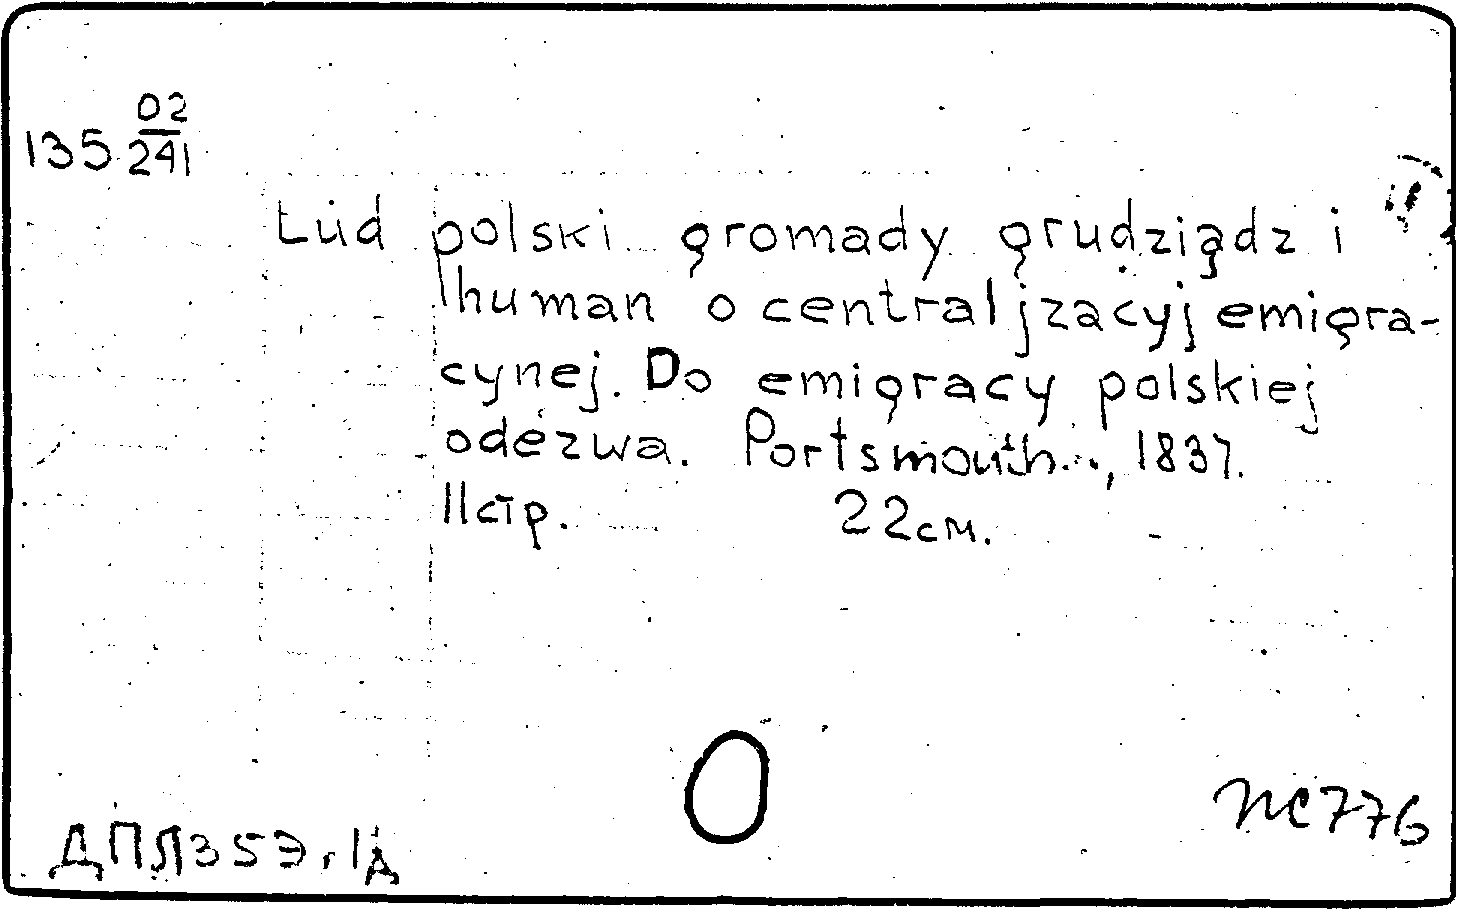 02
135 241
Lud polski gromady grudziądz i
human o centraljzacyj emigra-
cynej. Do emigracy polskiej
odezwa. Portsmouth..., 1837.
11 стр. 22 см.
ДПЛ 35Э, 1д
ПС776